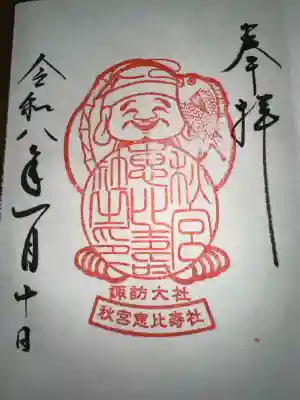 奉拝
秋宮
恵比寿
社之印
諏訪大社
秋宮恵比壽社
令和八年一月十日